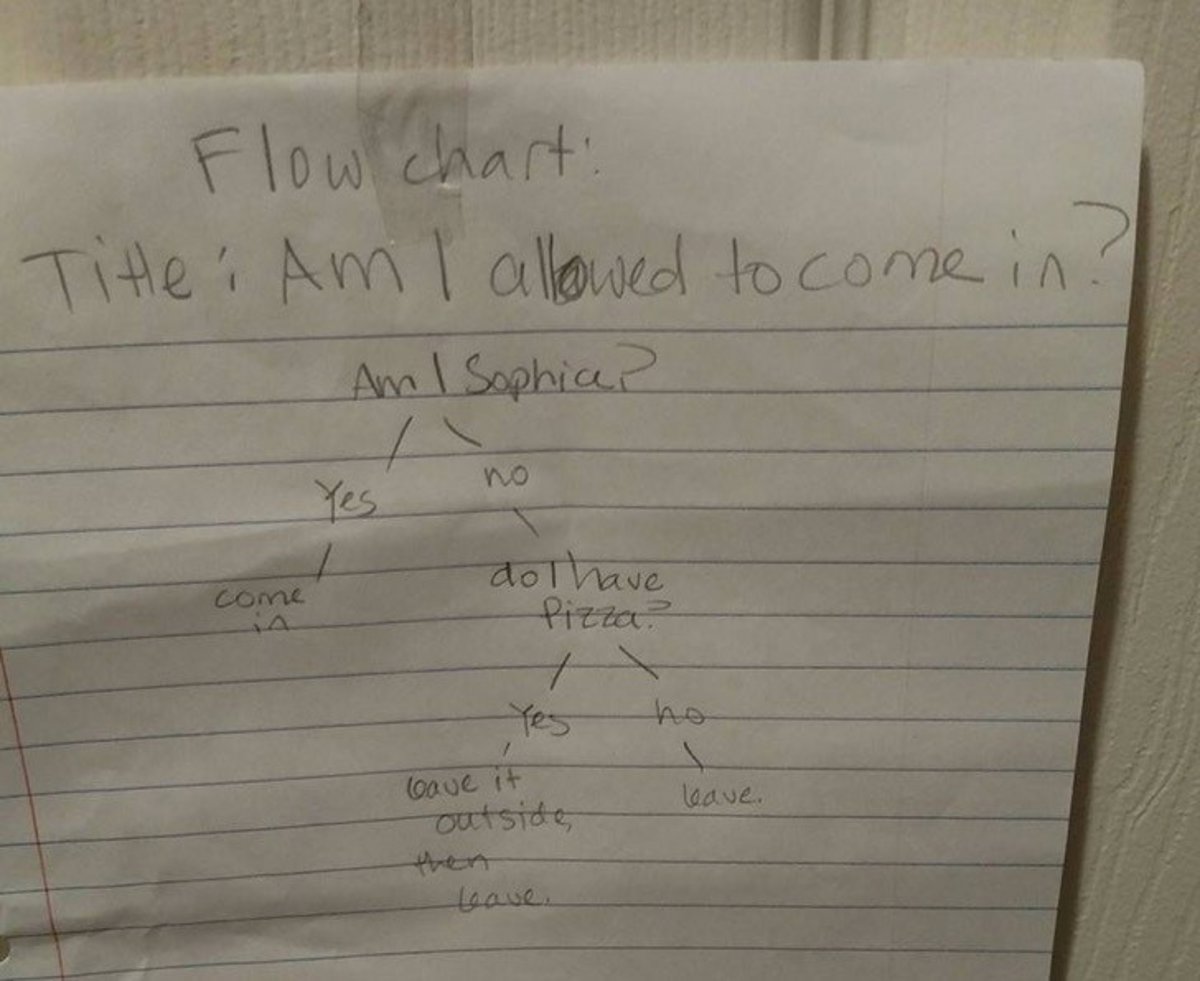 Flow chart:
Title: Am I allowed to come in?
Am I Sophia?
Yes
no
come
in
do I have
Pizza?
Yes
no
leave it
outside,
then
leave.
leave.